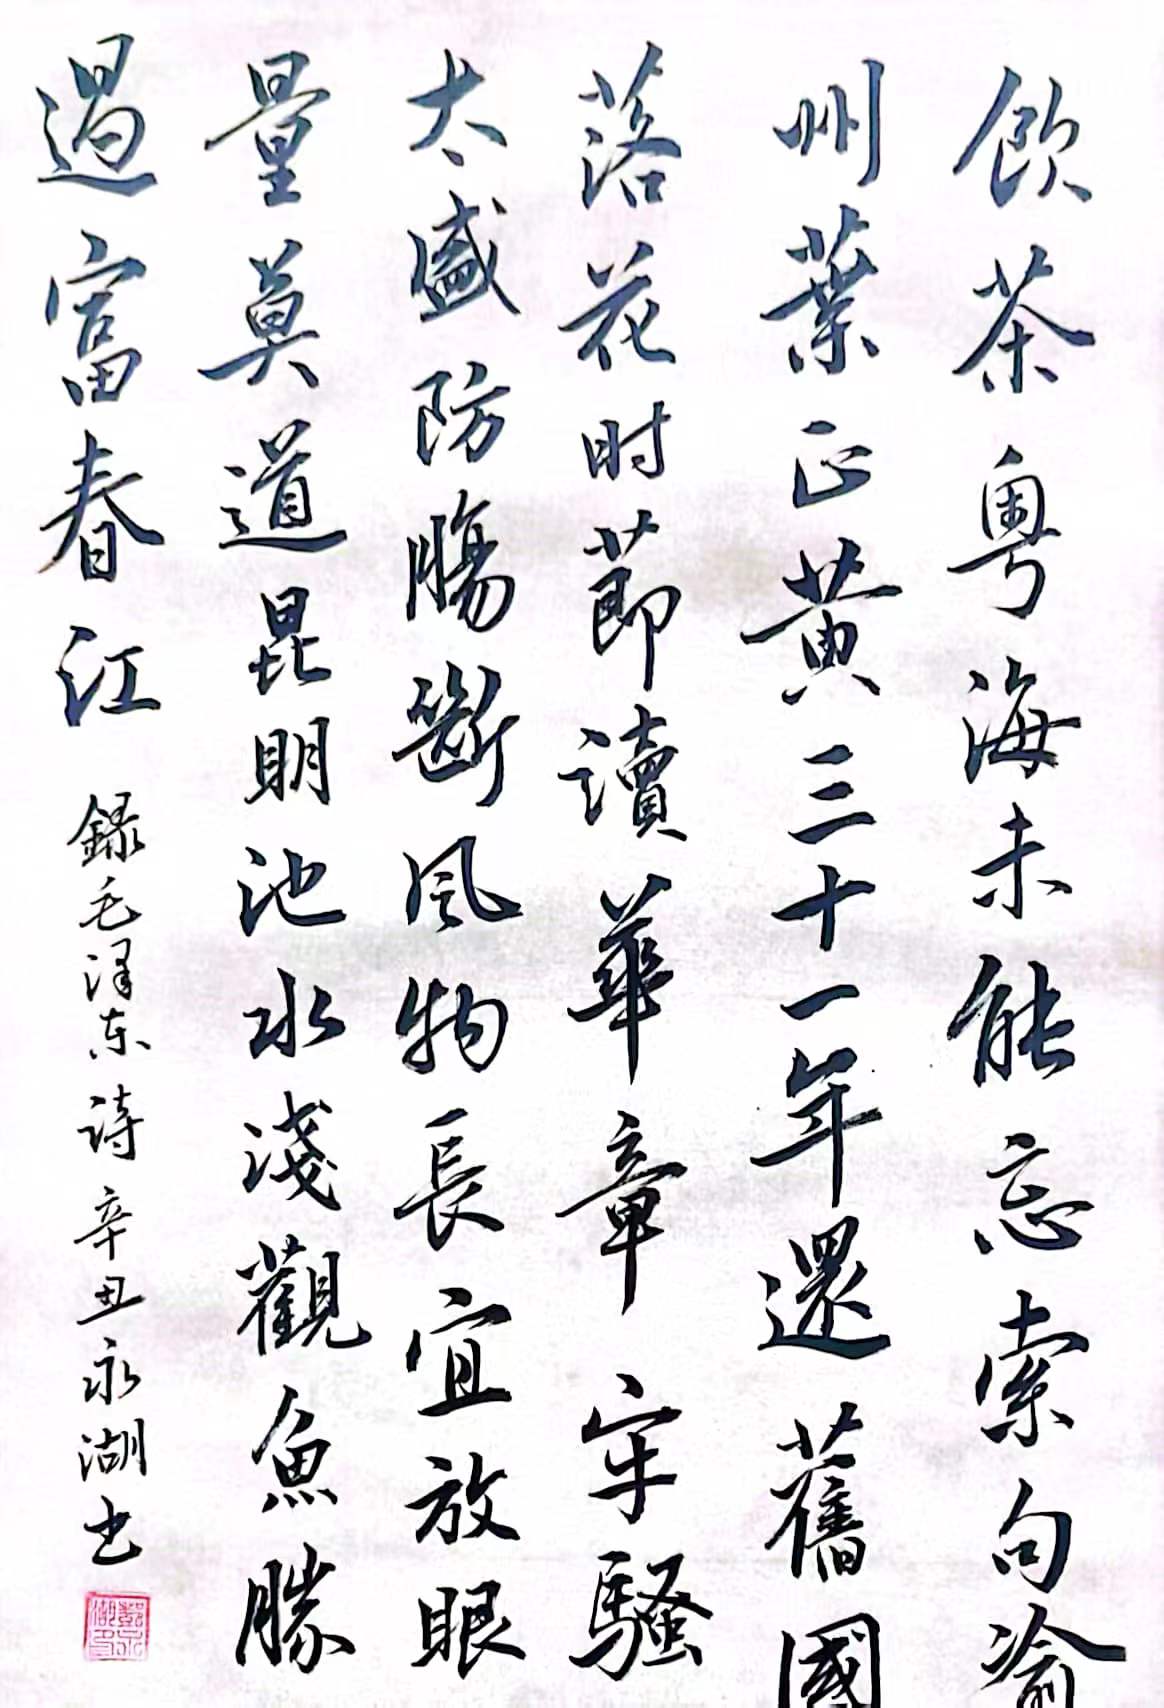 飲茶粤海未能忘索句渝
州葉正黄三十一年還舊國
落花时節讀華章牢騷
太盛防腸斷风物長宜放眼
量莫道昆明池水淺觀魚勝
過富春江
録毛泽东诗辛丑永湖书